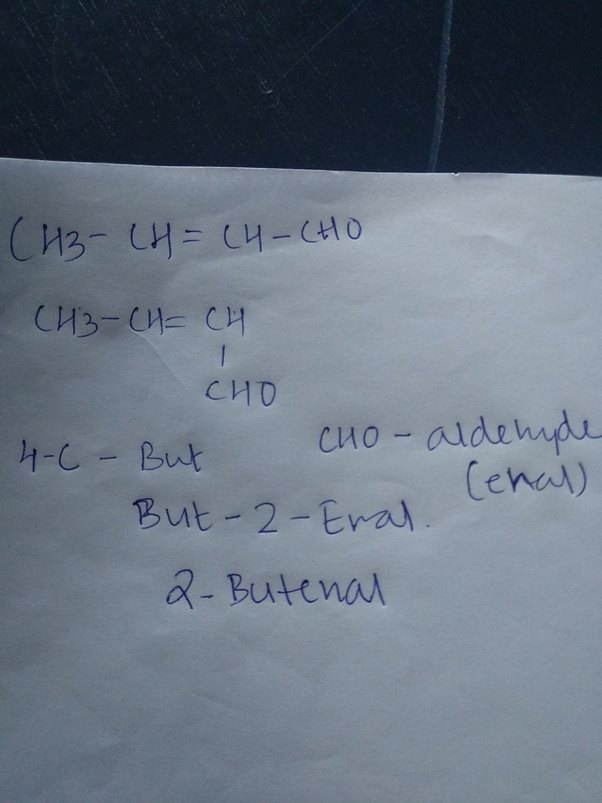 CH3 - CH = CH - CHO
CH3 - CH = CH
|
CHO
4-C - But
CHO - aldehyde
(enal)
But - 2 - Enal.
2 - Butenal